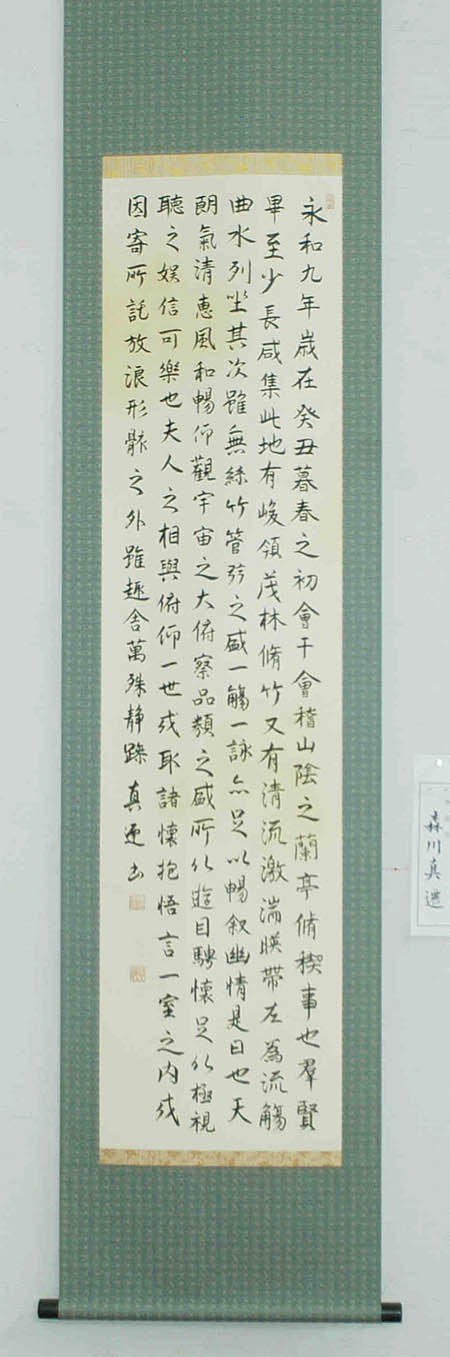 永和九年歳在癸丑暮春之初會于會稽山陰之蘭亭脩稧事也羣賢
畢至少長咸集此地有峻領茂林脩竹又有清流激湍暎帶左為流觴
曲水列坐其次雖無絲竹管弦之盛一觴一詠亦足以暢叙幽情是日也天
朗氣清恵風和暢仰觀宇宙之大俯察品類之盛所以遊目騁懷足以極視
聽之娯信可樂也夫人之相與俯仰一世或取諸懷抱悟言一室之内或
因寄所託放浪形骸之外雖趣舍萬殊静躁 真
森川真